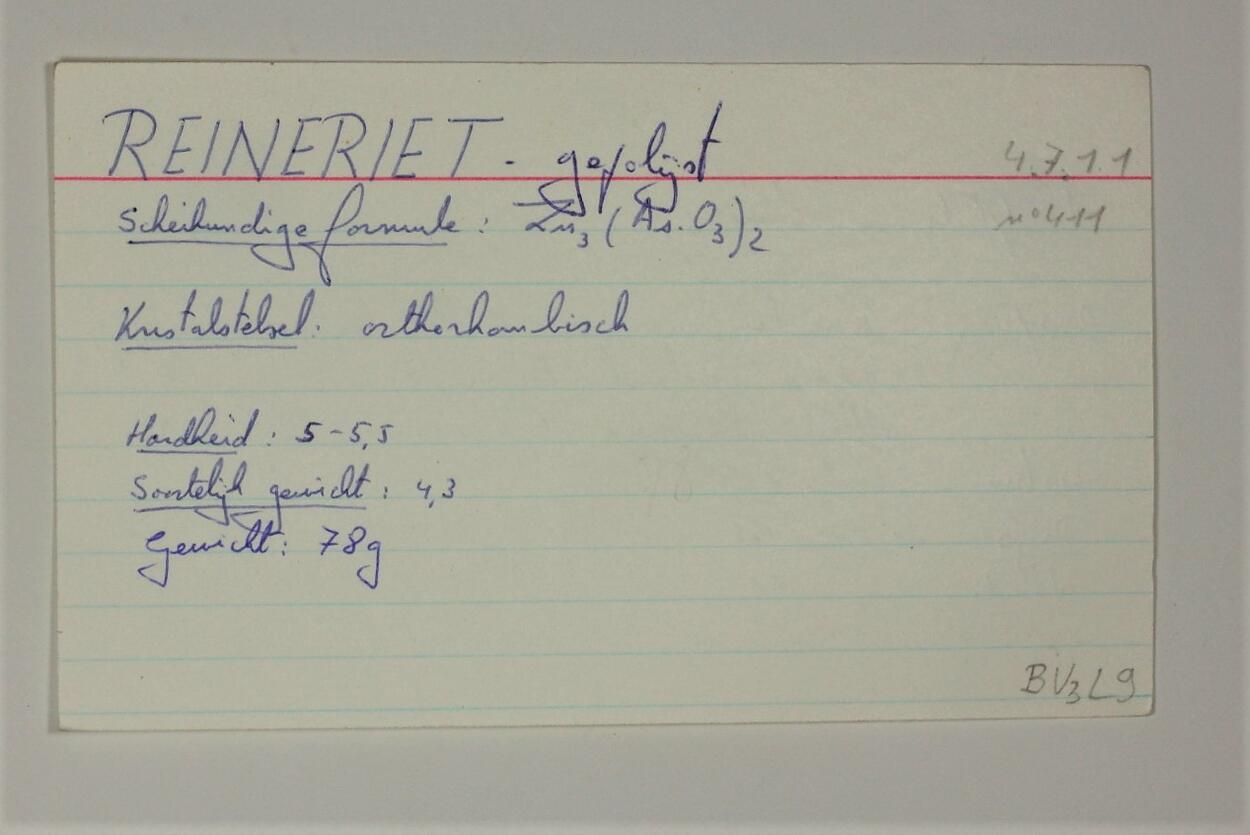 REINERIET - gepolijst
4.7.1.1
Scheikundige formule : Zn3 (As.O3)2
n° 411
Kristalstelsel: orthorhombisch
Hardheid : 5-5,5
Soortelijk gewicht : 4,3
Gewicht: 78g
BV3L9